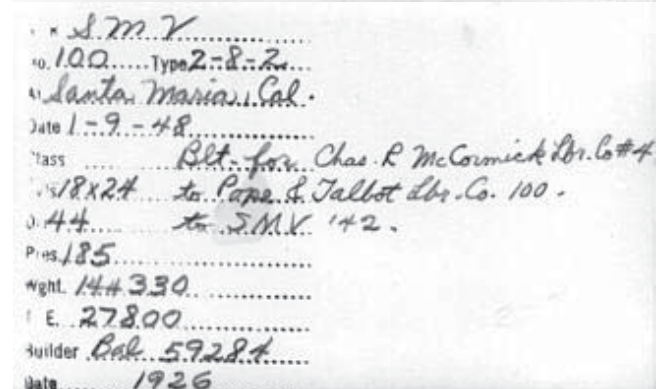 S M V
No. 100 Type 2-8-2
At Santa Maria, Cal.
Date 1-9-48
Class Blt. for Chas. R McCormick Lbr. Co #4
18x24 to Pope & Talbot Lbr. Co. 100.
D. 44 to SMV '42.
Pres. 185
Wght. 144330
T. E. 27800
Builder Bal 59284
Date 1926